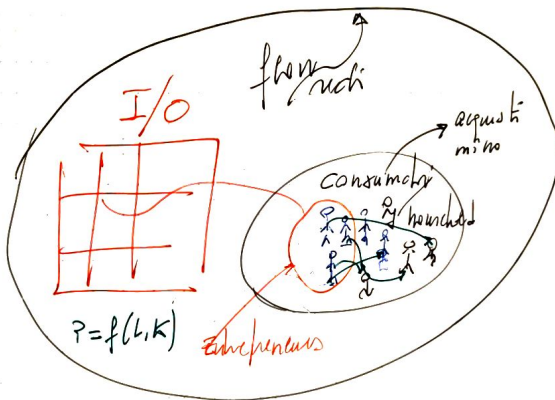 I/O
flow
acquisti
micro
consumatori
household
P=f(L,K)
Entrepreneurs